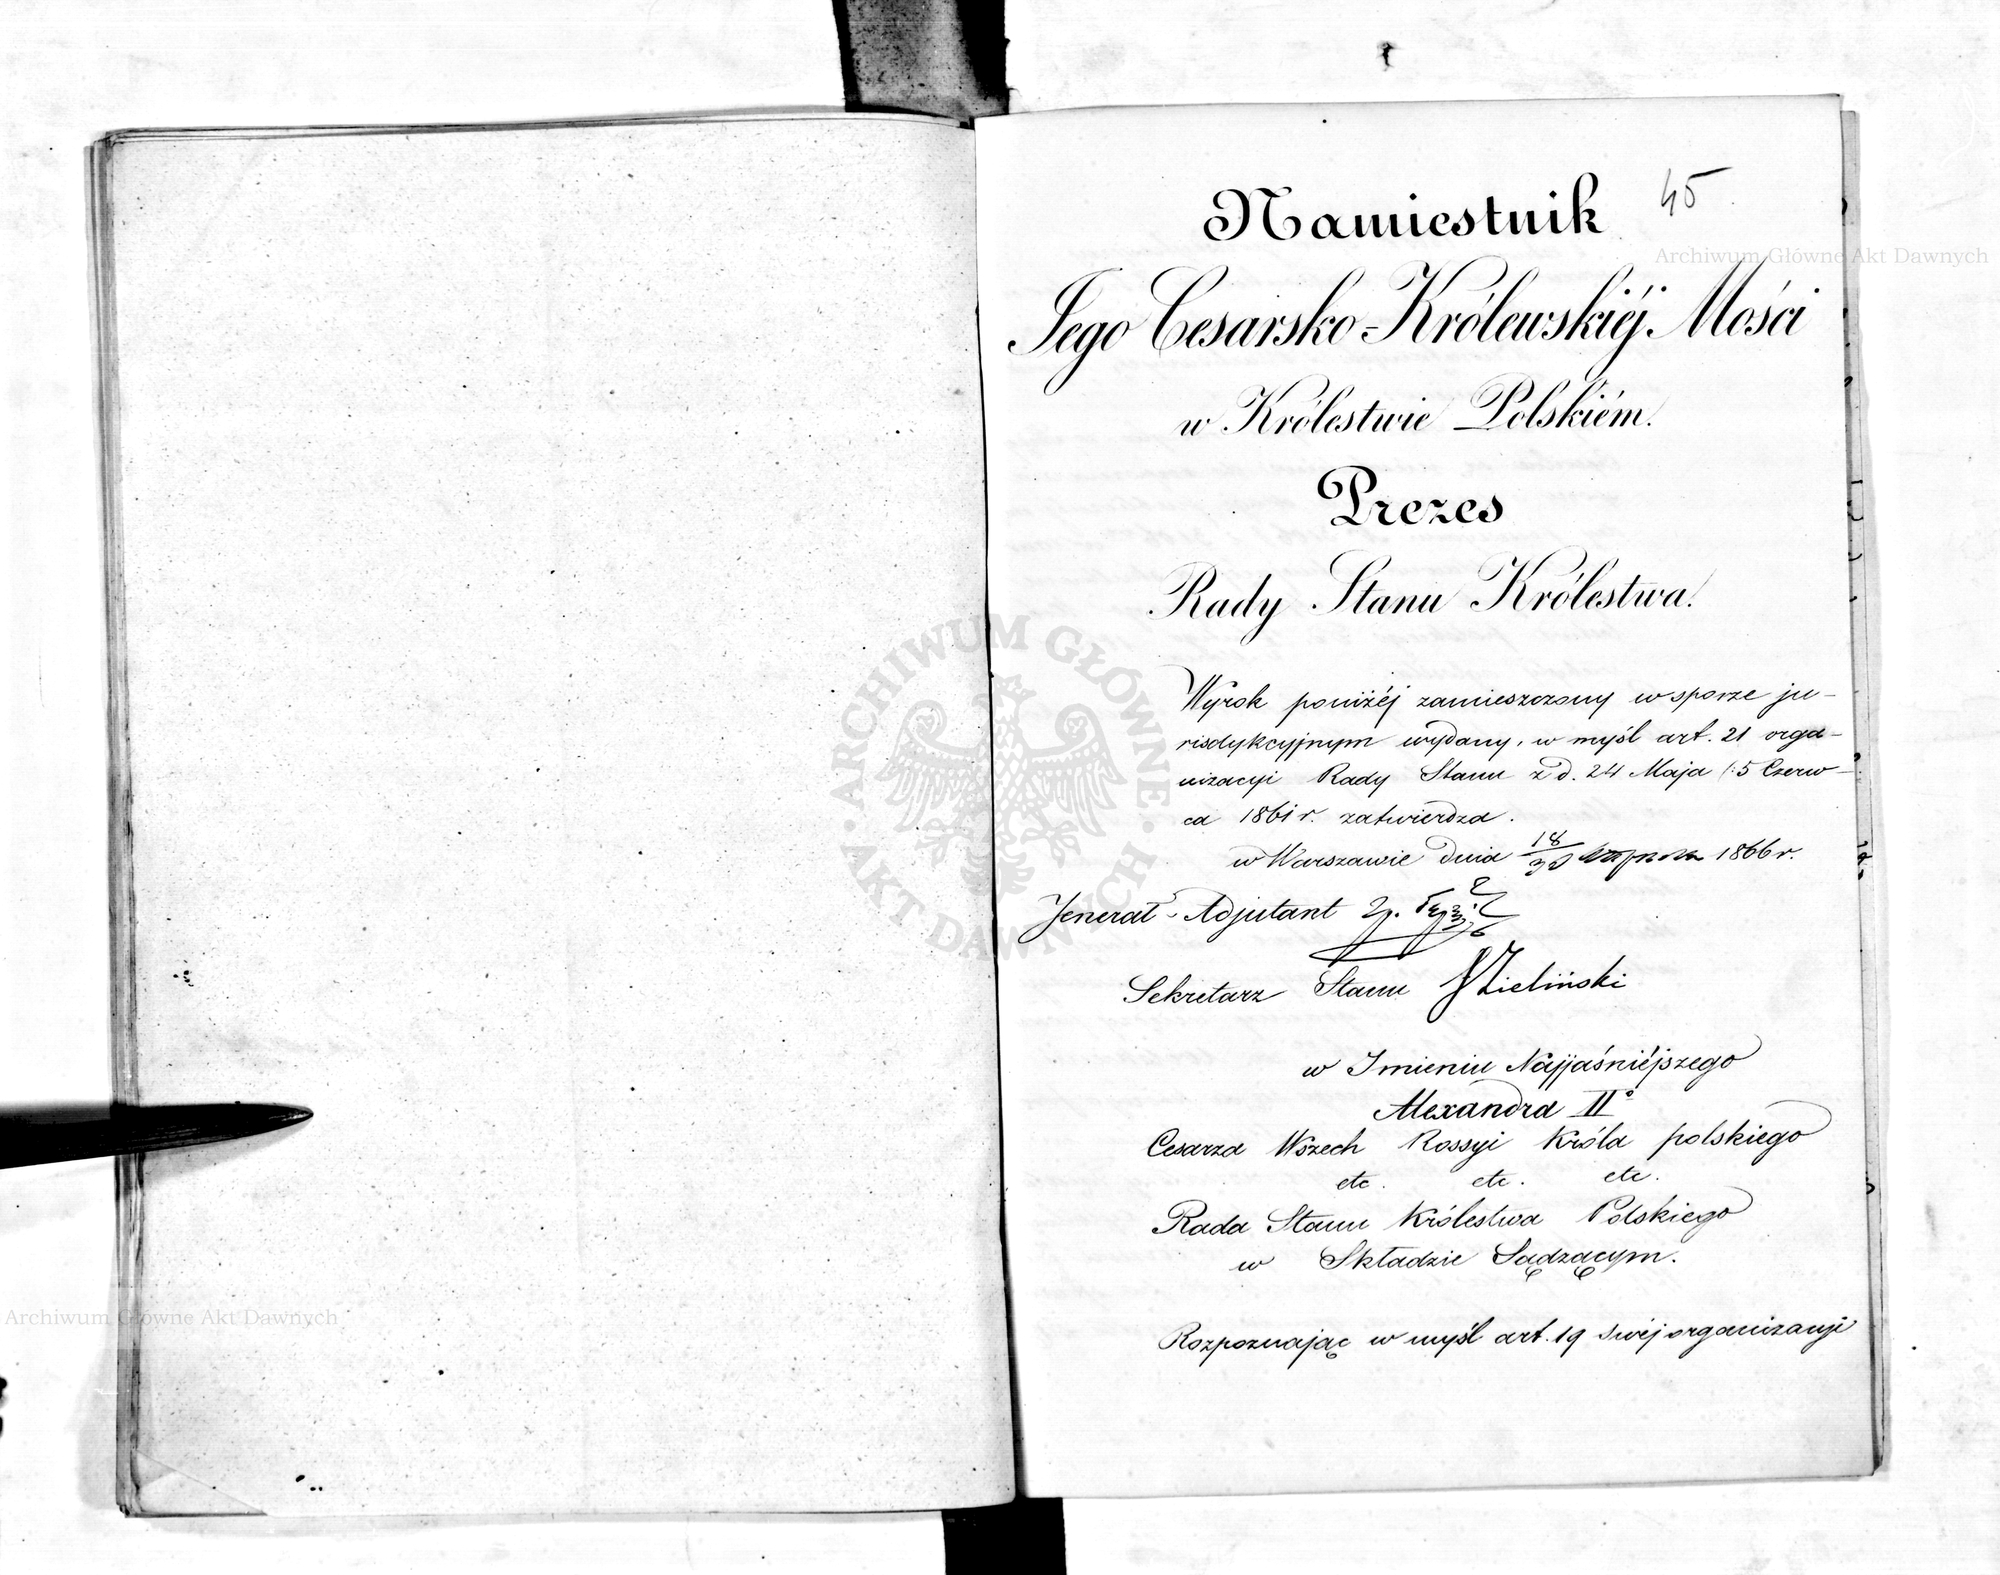 45
Namiestnik
Archiwum Główne Akt Dawnych
Jego Cesarsko-Królewskiéj Mości
w Królestwie Polskiém.
Prezes
Rady Stanu Królestwa.
Wyrok poniżéj zamieszczony w sporze ju-
risdykcyjnym wydany, w myśl art. 21 orga-
nizacyi Rady Stanu z d. 24 Maja /:5 Czerw-
ca 1861 r. zatwierdza.
w Warszawie dnia 18/30 1866 r.
Jenerał-Adjutant
Sekretarz Stanu Zieliński
w Imieniu Najjaśniéjszego
Alexandra IIo
Cesarza Wszech Rossyi Króla polskiego
etc. etc. etc.
Rada Stanu Królestwa Polskiego
w Składzie Sądzącym.
Rozpoznając w myśl art. 19 swéj organizacyi
ARCHIWUM GŁÓWNE AKT DAWNYCH
Archiwum Główne Akt Dawnych